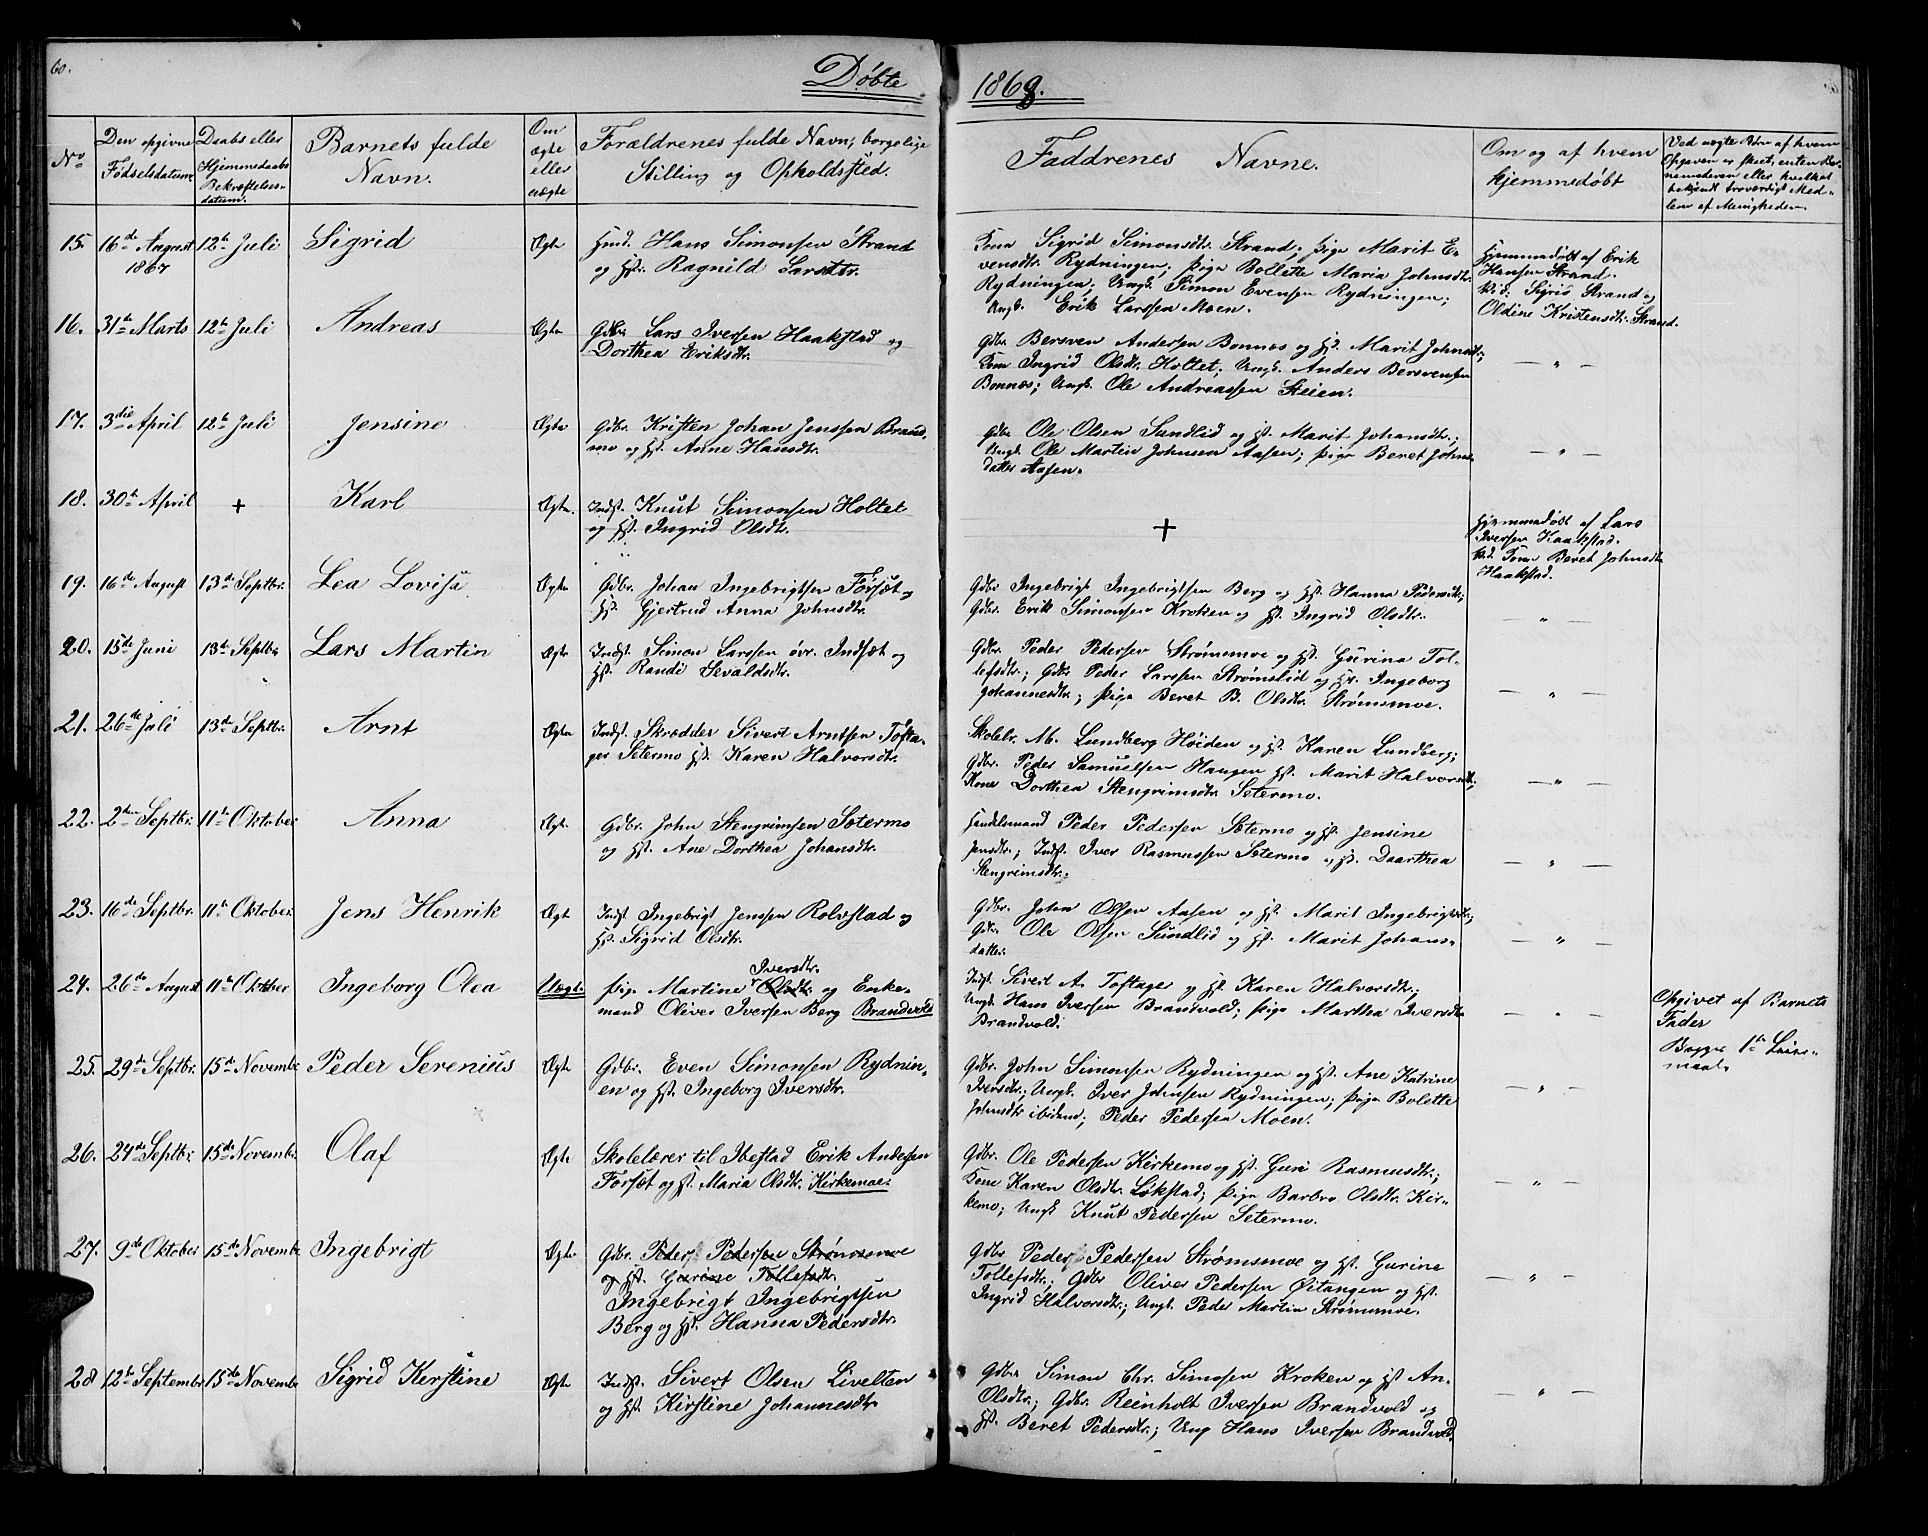 60.
Døbte 1868.
No
Den opgivne Fødselsdatum.
Daabs eller Hjemmedaabs Bekræftelses-datum.
Barnets fulde Navn.
Om ægte eller uægte
Forældrenes fulde Navn, borgelige Stilling og Opholdssted.
Faddrenes Navne.
Om og af hvem hjemmedøbt
Ved uægte Børn af hvem Opgaven er skeet, enten Barnemoderen eller hvilket bekjendt troværdigt Medlem af Menigheden.
15. 16de August 1867 12te Juli Sigrid Ægte
Hmd. Hans Simonsen Strand
og Hst. Ragnild Larsdtr.
Kone Sigrid Simonsdtr. Strand; Pige Marit E-
vensdtr. Rydningen; Pige Bollette Maria Johnsdtr.
Rydningen; Ungk. Simon Evensen Rydningen;
Ungk. Erik Larssen Moen.
Hjemmedøbt af Erik
Hansen Strand.
Vid: Sigrid Strand og
Oldine Kristensdtr. Strand.
16. 31te Marts 12te Juli Andreas Ægte
Gdbr. Lars Iversen Haakstad og
Dorthea Eriksdtr.
Gdbr. Bersven Andersen Bonnes og Hst. Marit Johnsdtr;
Kone Ingrid Olsdtr. Holtet; Ungk. Anders Bersvensen
Bonnes; Ungk. Ole Andreassen Steien.
— " —
17. 3die April 12te Juli Jensine Ægte
Gdbr. Kristen Johan Jenssen Brand-
mo og Hst. Anne Hansdtr.
Gdbr Ole Olsen Sundlid og Hst. Marit Johansdtr.;
Ungk. Ole Martin Johnsen Aasen; Pige Beret Johns-
datter Aasen.
— " —
18. 30te April + Karl Ægte.
Indst. Knut Simonsen Holtet
og Hst. Ingrid Olsdtr.
+
Hjemmedøbt af Lars
Iversen Haakstad.
Vid. Kone Beret Johnsdtr
Haakstad.
19. 16de August 13de Septbr. Lea Lovisa Ægte
Gdbr. Johan Ingebrigtsen Forset og
Hst. Gjertrud Anna Johnsdtr.
Gdbr Ingebrigt Ingebrigtsen Berg og Hst. Hanna Pedersdtr;
Gdbr. Erik Simonsen Kroken og Hst. Ingrid Olsdtr.
— " —
20. 15de Juni 13de Septbr Lars Martin Ægte
Indst. Simon Larssen øvr. Indset og
Hst. Randi Sevaldsdtr.
Gdbr. Peder Pedersen Strømsmoe og Hst. Gurina Tol-
lefsdtr.; Gdbr Peder Larssen Strømslid og Hst. Ingeborg
Johannesdtr.; Pige Beret B. Olsdtr. Strømsmoe.
— " —
21. 26de Juli 13de Septbr. Arnt Ægte
Indst. Skredder Sivert Arntsen Tofta-
ger Setermo Hst. Karen Halvorsdtr.
Skolelr. M. Lundberg Høiden og Hst. Karen Lundberg;
Gdbr. Peder Samuelsen Haugen Hst. Marit Halvorsdtr;
Kone Dorthea Stengrimsdtr. Setermo.
— " —
22. 2den Septbr. 11te Oktober Anna Ægte
Gdbr. John Stengrimsen Setermo
og Hst. Ane Dorthea Johansdtr.
Handelsmand Peder Pedersen Setermo og Hst. Jensine
Jensdtr.; Indst. Iver Rasmussen Setermo og Hst. Daarthea
Stengrimsdtr.
— " —
23. 16de Septbr. 11te Oktober. Jens Henrik Ægte
Indst. Ingebrigt Jenssen Rolvstad og
Hst. Sigrid Olsdtr.
Gdbr. John Olsen Aasen og Hst. Marit Ingebrigtsdtr;
Gdbr. Ole Olsen Sundlid og Hst. Marit Johans-
datter.
— " —
24. 26de August 11te Oktober Ingeborg Olea Uægte
Iversdtr.
Pige Martine Olsdtr. og Enke-
mand Oliver Iversen Berg Brandvold
Indst. Sivert A. Toftager og Hst. Karen Halvorsdtr.;
Ungk. Hans Iversen Brandvold; Pige Martha Iversdtr.
Brandvold.
— " —
Opgivet af Barnets
Fader
Begge 1te Leiers-
maal.
25. 29de Septbr. 15de Novembr Peder Serenius Ægte
Gdbr. Even Simonsen Rydnin-
en og Hst. Ingeborg Iversdtr.
Gdbr. John Simonsen Rydningen og Hst. Ane Katrine
Iversdtr.; Ungk. Iver Johnsen Rydningen; Pige Bolette
Johnsdtr ibidem; Peder Pedersen Moen.
— " —
26. 24de Septbr. 15de Novembr. Olaf Ægte
Skolelærer til Ibestad Erik Andersen
Forset og Hst. Maria Olsdtr. Kirkemoe.
Gdbr. Ole Pedersen Kirkemo og Hst. Guri Rasmusdtr.;
Kone Karen Olsdtr. Løkstad; Pige Barbro Olsdtr. Kir-
kemo; Ungk Knut Pedersen Setermo.
— " —
27. 9de Oktober 15de Novembr Ingebrigt Ægte
Gdbr. Peder Pedersen Strømsmoe
og Hst. Gurine Tollefsdtr.
Ingebrigt Ingebrigtsen
Berg og Hst. Hanna Pedersdtr.
Gdbr Peder Pedersen Strømsmoe og Hst. Gurine
Tollefsdtr.; Gdbr Oliver Pedersen Øitangen og Hst.
Ingrid Halvorsdtr.; Ungk. Peder Martin Strømsmoe.
— " —
28 12te Septembr 15de Novembr Sigrid Kerstine Ægte
Indst. Sivert Olsen Livelten
og Hst. Kirstine Johannesdtr
Gdbr Simon Chr. Simosen Kroken og Hst An-
Olsdtr.; Gdbr. Reinholt Iversen Brandvold og
Hst. Beret Pedersdtr.; Ung Hans Iversen Brandvold.
— " —